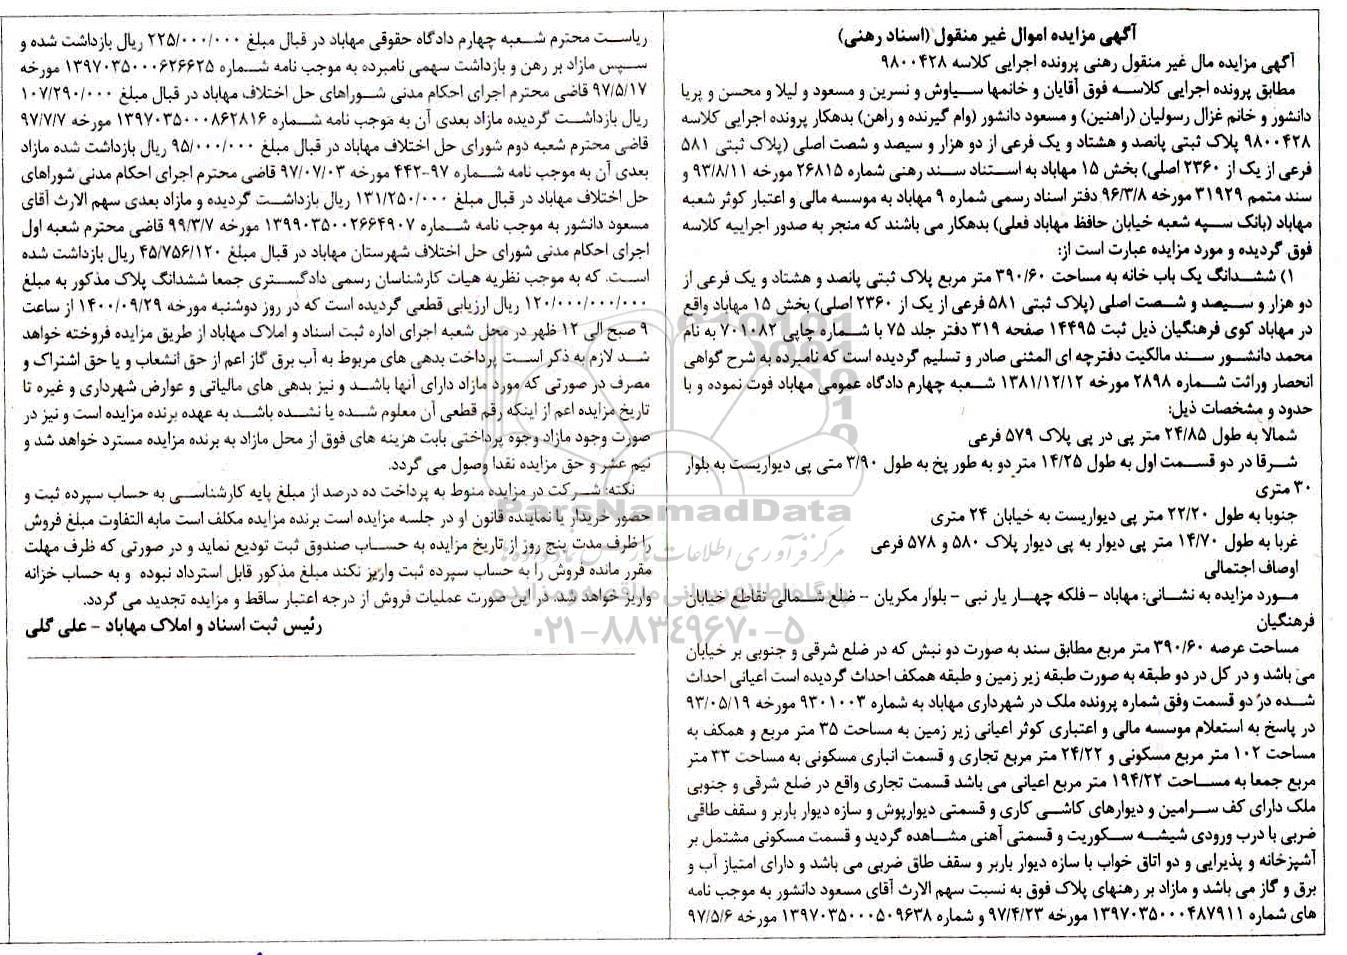 آگهی مزایده اموال غیر منقول (اسناد رهنی)
آگهی مزایده مال غیر منقول رهنی پرونده اجرایی کلاسه ۹۸۰۰۴۲۸
مطابق پرونده اجرایی کلاسه فوق آقایان و خانمها سیاوش و نسرین و مسعود و لیلا و محسن و پریا
دانشور و خانم غزال رسولیان (راهنین) و مسعود دانشور (وام گیرنده و راهن) بدهکار پرونده اجرایی کلاسه
۹۸۰۰۴۲۸ پلاک ثبتی پانصد و هشتاد و یک فرعی از دو هزار و سیصد و شصت اصلی (پلاک ثبتی ۵۸۱
فرعی از یک از ۲۳۶۰ اصلی) بخش ۱۵ مهاباد به استناد سند رهنی شماره ۲۶۸۱۵ مورخه ۹۳/۸/۱۱ و
سند متمم ۳۱۹۲۹ مورخه ۹۶/۳/۸ دفتر اسناد رسمی شماره ۹ مهاباد به موسسه مالی و اعتبار کوثر شعبه
مهاباد (بانک سپه شعبه خیابان حافظ مهاباد فعلی) بدهکار می باشند که منجر به صدور اجراییه کلاسه
فوق گردیده و مورد مزایده عبارت است از:
۱) ششدانگ یک باب خانه به مساحت ۳۹۰/۶۰ متر مربع پلاک ثبتی پانصد و هشتاد و یک فرعی از
دو هزار و سیصد و شصت اصلی (پلاک ثبتی ۵۸۱ فرعی از یک از ۲۳۶۰ اصلی) بخش ۱۵ مهاباد واقع
در مهاباد کوی فرهنگیان ذیل ثبت ۱۴۴۹۵ صفحه ۳۱۹ دفتر جلد ۷۵ با شماره چاپی ۷۰۱۰۸۲ به نام
محمد دانشور سند مالکیت دفترچه ای المثنی صادر و تسلیم گردیده است که نامبرده به شرح گواهی
انحصار وراثت شماره ۲۸۹۸ مورخه ۱۳۸۱/۱۲/۱۲ شعبه چهارم دادگاه عمومی مهاباد فوت نموده و با
حدود و مشخصات ذیل:
شمالا به طول ۲۴/۸۵ متر پی در پی پلاک ۵۷۹ فرعی
شرقا در دو قسمت اول به طول ۱۴/۲۵ متر دو به طور پخ به طول ۳/۹۰ متی پی دیواریست به بلوار
۳۰ متری
جنوبا به طول ۲۲/۲۰ متر پی دیواریست به خیابان ۲۴ متری
غربا به طول ۱۴/۷۰ متر پی دیوار به پی دیوار پلاک ۵۸۰ و ۵۷۸ فرعی
اوصاف اجتمالی
مورد مزایده به نشانی: مهاباد – فلکه چهار یار نبی – بلوار مکریان – ضلع شمالی تقاطع خیابان
فرهنگیان
مساحت عرصه ۳۹۰/۶۰ متر مربع مطابق سند به صورت دو نبش که در ضلع شرقی و جنوبی بر خیابان
می باشد و در کل در دو طبقه به صورت طبقه زیر زمین و طبقه همکف احداث گردیده است اعیانی احداث
شده در دو قسمت وفق شماره پرونده ملک در شهرداری مهاباد به شماره ۹۳۰۱۰۰۳ مورخه ۹۳/۰۵/۱۹
در پاسخ به استعلام موسسه مالی و اعتباری کوثر اعیانی زیر زمین به مساحت ۳۵ متر مربع و همکف به
مساحت ۱۰۲ متر مربع مسکونی و ۲۴/۲۲ متر مربع تجاری و قسمت انباری مسکونی به مساحت ۳۳ متر
مربع جمعا به مساحت ۱۹۴/۲۲ متر مربع اعیانی می باشد قسمت تجاری واقع در ضلع شرقی و جنوبی
ملک دارای کف سرامین و دیوارهای کاشی کاری و قسمتی دیوارپوش و سازه دیوار باربر و سقف طاقی
ضربی با درب ورودی شیشه سکوریت و قسمتی آهنی مشاهده گردید و قسمت مسکونی مشتمل بر
آشپزخانه و پذیرایی و دو اتاق خواب با سازه دیوار باربر و سقف طاق ضربی می باشد و دارای امتیاز آب و
برق و گاز می باشد و مازاد بر رهنهای پلاک فوق به نسبت سهم الارث آقای مسعود دانشور به موجب نامه
های شماره ۱۳۹۷۰۳۵۰۰۰۴۸۷۹۱۱ مورخه ۹۷/۴/۲۳ و شماره ۱۳۹۷۰۳۵۰۰۰۵۰۹۶۳۸ مورخه ۹۷/۵/۶
ریاست محترم شعبه چهارم دادگاه حقوقی مهاباد در قبال مبلغ ۲۲۵/۰۰۰/۰۰۰ ریال بازداشت شده و
سپس مازاد بر رهن و بازداشت سهمی نامبرده به موجب نامه شماره ۱۳۹۷۰۳۵۰۰۰۶۲۶۶۲۵ مورخه
۹۷/۵/۱۷ قاضی محترم اجرای احکام مدنی شوراهای حل اختلاف مهاباد در قبال مبلغ ۱۰۷/۲۹۰/۰۰۰
ریال بازداشت گردیده مازاد بعدی آن به موجب نامه شماره ۱۳۹۷۰۳۵۰۰۰۸۶۲۸۱۶ مورخه ۹۷/۷/۷
قاضی محترم شعبه دوم شورای حل اختلاف مهاباد در قبال مبلغ ۹۵/۰۰۰/۰۰۰ ریال بازداشت شده مازاد
بعدی آن به موجب نامه شماره ۹۷-۴۴۲ مورخه ۹۷/۰۷/۰۳ قاضی محترم اجرای احکام مدنی شوراهای
حل اختلاف مهاباد در قبال مبلغ ۱۳۱/۲۵۰/۰۰۰ ریال بازداشت گردیده و مازاد بعدی سهم الارث آقای
مسعود دانشور به موجب نامه شماره ۱۳۹۹۰۳۵۰۰۲۶۶۴۹۰۷ مورخه ۹۹/۳/۷ قاضی محترم شعبه اول
اجرای احکام مدنی شورای حل اختلاف شهرستان مهاباد در قبال مبلغ ۴۵/۷۵۶/۱۲۰ ریال بازداشت شده
است. که به موجب نظریه هیات کارشناسان رسمی دادگستری جمعا ششدانگ پلاک مذکور به مبلغ
۱۲۰/۰۰۰/۰۰۰/۰۰۰ ریال ارزیابی قطعی گردیده است که در روز دوشنبه مورخه ۱۴۰۰/۰۹/۲۹ از ساعت
۹ صبح الی ۱۲ ظهر در محل شعبه اجرای اداره ثبت اسناد و املاک مهاباد از طریق مزایده فروخته خواهد
شد لازم به ذکر است پرداخت بدهی های مربوط به آب برق گاز اعم از حق انشعاب و یا حق اشتراک و
مصرف در صورتی که مورد مازاد دارای آنها باشد و نیز بدهی های مالیاتی و عوارض شهرداری و غیره تا
تاریخ مزایده اعم از اینکه رقم قطعی آن معلوم شده یا نشده باشد به عهده برنده مزایده است و نیز در
صورت وجود مازاد وجوه پرداختی بابت هزینه های فوق از محل مازاد به برنده مزایده مسترد خواهد شد و
نیم عشر و حق مزایده نقدا وصول می گردد.
نکته: شرکت در مزایده منوط به پرداخت ده درصد از مبلغ پایه کارشناسی به حساب سپرده ثبت و
حضور خریدار یا نماینده قانون او در جلسه مزایده است برنده مزایده مکلف است مابه التفاوت مبلغ فروش
را ظرف مدت پنج روز از تاریخ مزایده به حساب صندوق ثبت تودیع نماید و در صورتی که ظرف مهلت
مقرر مانده فروش را به حساب سپرده ثبت واریز نکند مبلغ مذکور قابل استرداد نبوده و به حساب خزانه
واریز خواهد شد. در این صورت عملیات فروش از درجه اعتبار ساقط و مزایده تجدید می گردد.
رئیس ثبت اسناد و املاک مهاباد – علی گلی
ParsNamadData
پایگاه اطلاع رسانی مناقصه و مزایده
۰۲۱-۸۸۳۴۹۶۷۰-۵